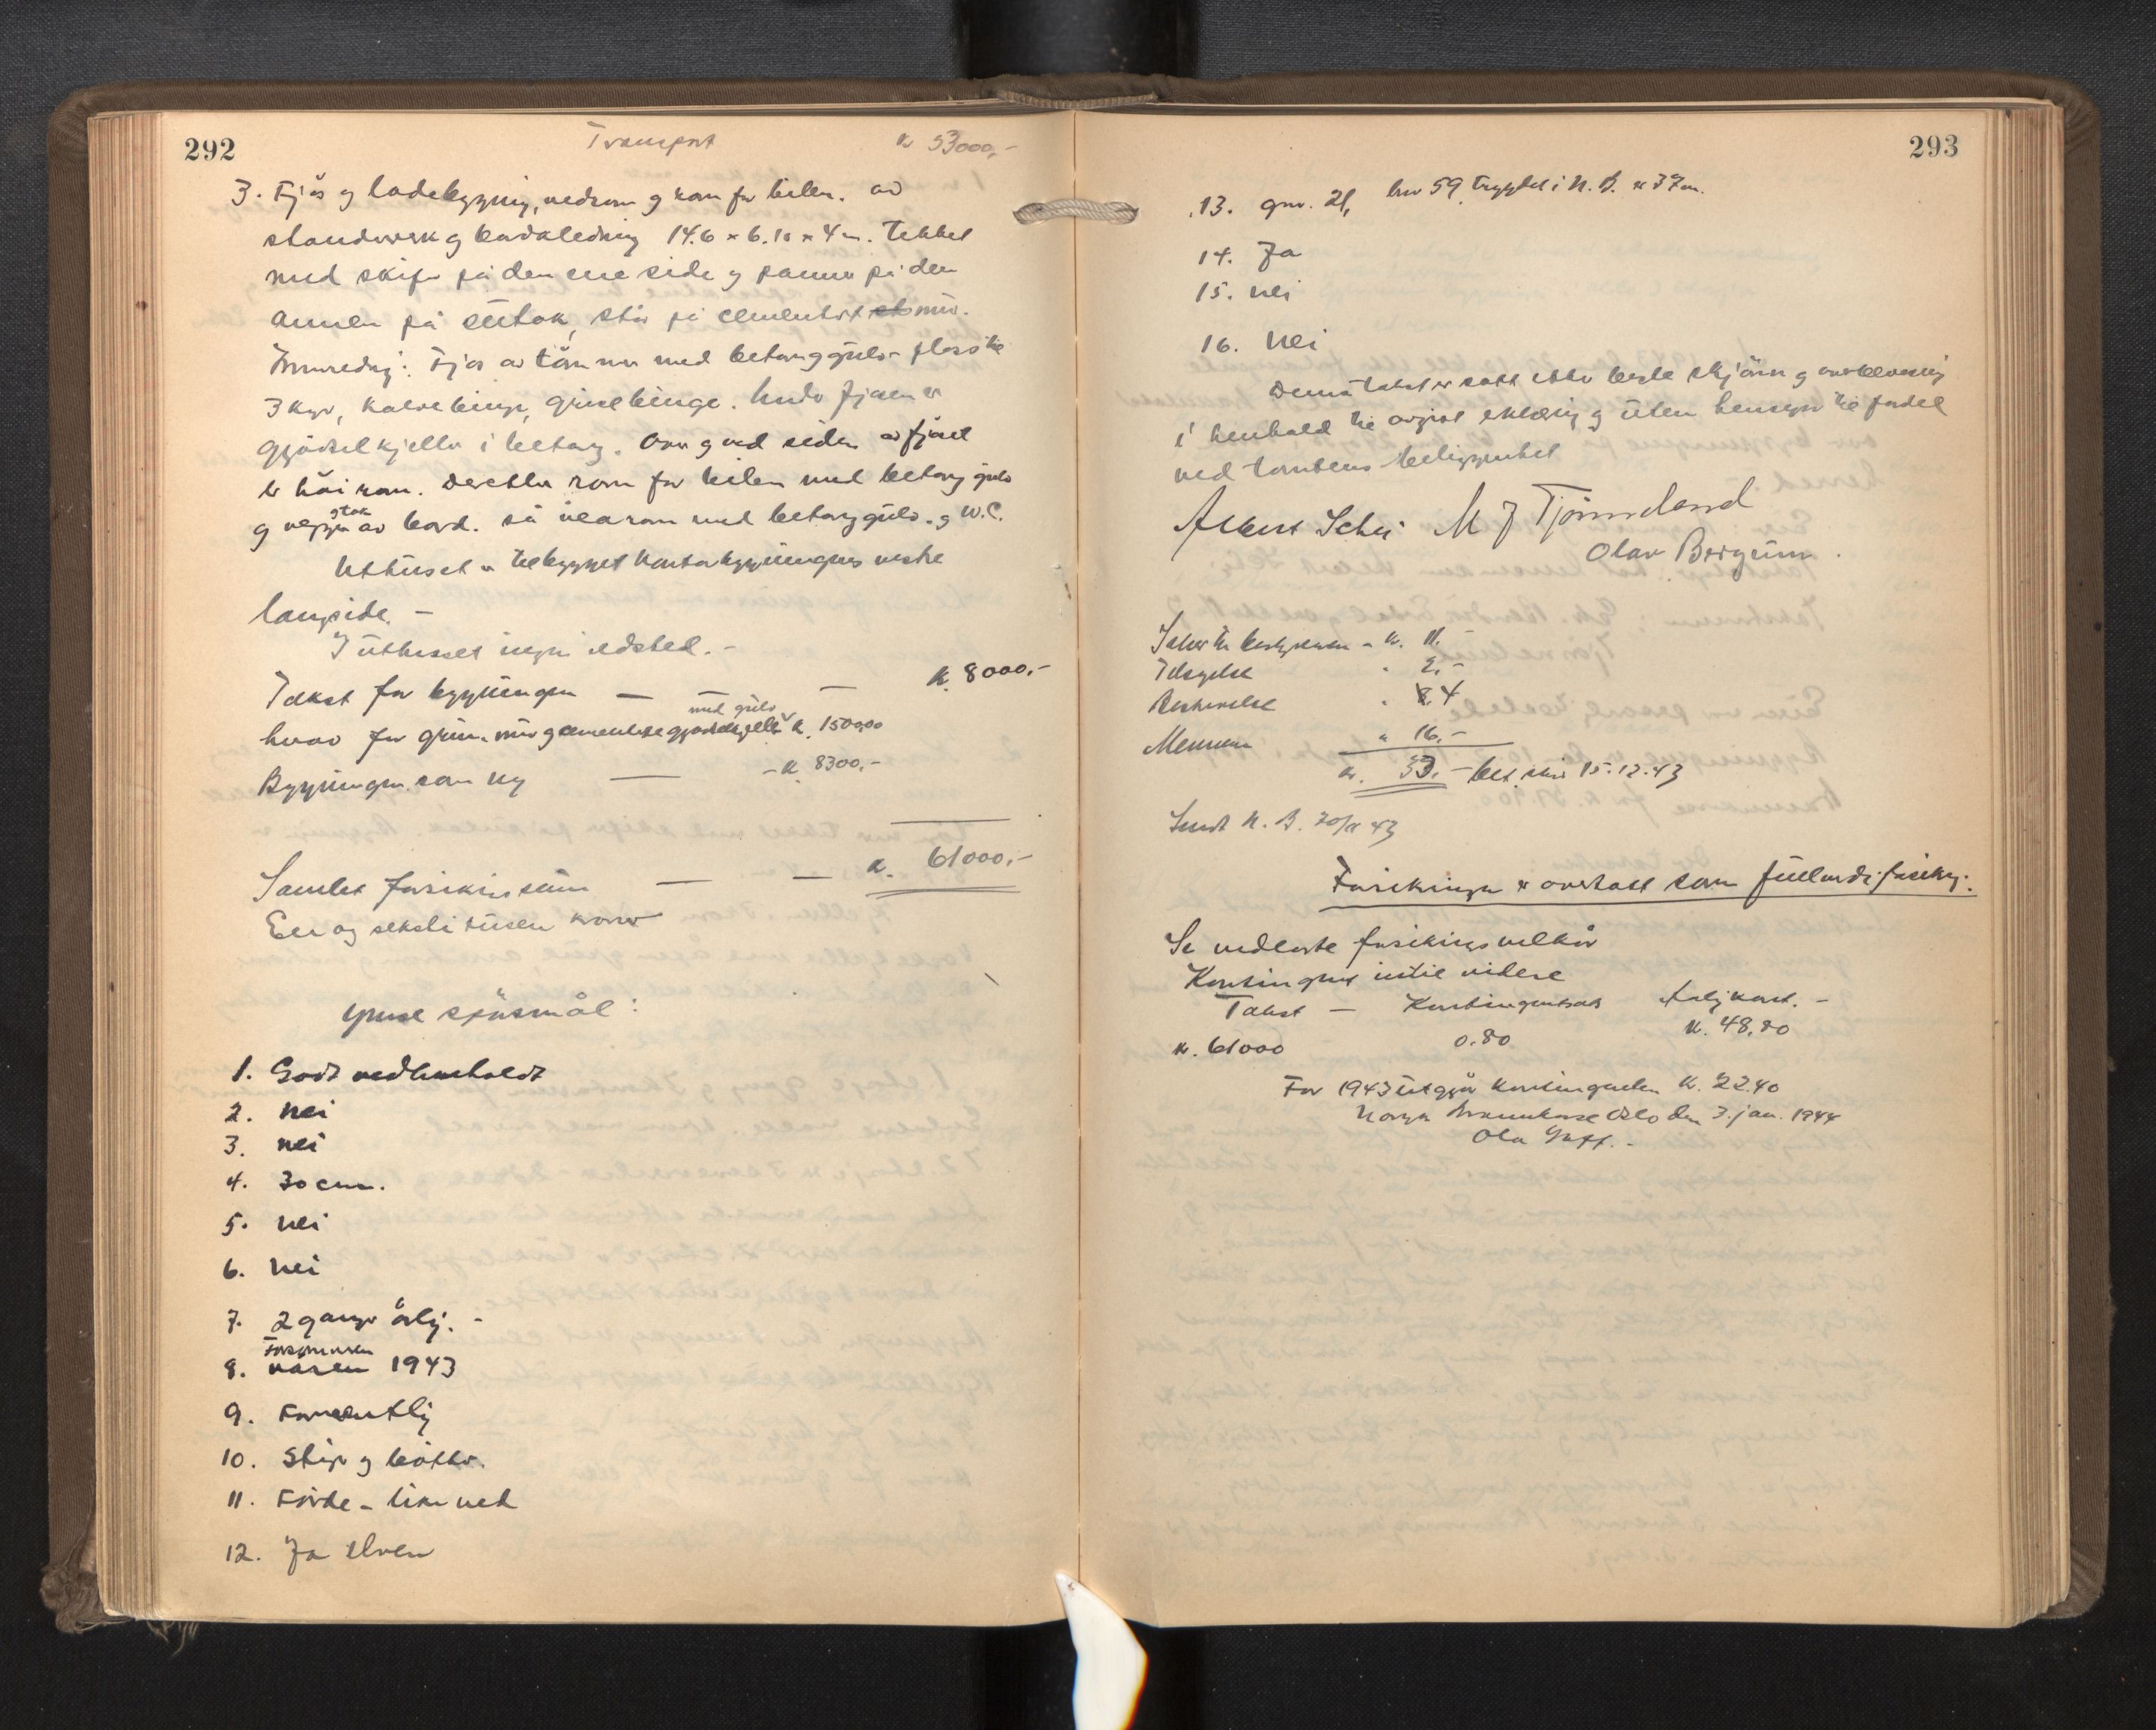 292
Transport kr 53000,-
3. Fjøs og ladebygning, vedrom og rom for bilen. av
standverk og bordkledning 14.6 x 6.10 x 4 m. Tekket
med skifer på den ene side og panner på den
annen på sutak, står på cementert mur.
Innredning: Fjøs av tømmer med betonggulv plass til
3 kyr, kalvebinge, grisebinge. Under fjøsen er
gjødselkjeller i betong. Over og ved siden av fjøset
er høirom. Deretter rom for bilen med betonggulv
og vegger og tak av bord. Så vedrom med betonggulv og W.C.
Uthuset er tilbygget kontorbygningens vestre
langside. -
I uthuset ingen ildsted. -
Takst for bygningen — — kr. 8000.-
hvorav for grunnmur og cementert gjødselkjeller med gulv kr. 1500,00
Bygningen som ny — - kr. 8300,-
Samlet forsikringssum — — kr. 61000,-
En og seksti tusen kroner
Ymse spørsmål:
1. Godt vedlikeholdt
2. Nei
3. Nei
4. 30 cm.
5. Nei
6. Nei
7. 2 ganger årlig. -
8. Forsommeren 1943
9. Forsvarlig
10. Stige og bøtter.
11. Førde - like ved
12. Ja elven
293
13. gnr. 21, bnr 59, trygdet i N. B. kr 37 m.
14. Ja
15. Nei
16. Nei
Denne takst er satt etter beste skjønn og overbevisning
i henhold til avgitt erklæring og uten hensyn til fordel
ved tomtens beliggenhet
Albert Schei M J Tjønneland
Olav Bergum.
- kr. 11.-
Tilsigelse " 2.-
Beskrivelse " 4
Mennene " 16.-
kr. 33.- bet. 15.12.43
Sendt N. B. 43
Forsikringen er overtatt som fullverdiforsikring.
Se vedlagte forsikringsvilkår
Kontingent inntil videre
Takst — Kontingentsats Årlig kont. -
kr. 61000 0.80 kr. 48,80
For 1943 utgjør kontingenten kr. 22.40
Norges Brannkasse Oslo den 3. jan. 1944